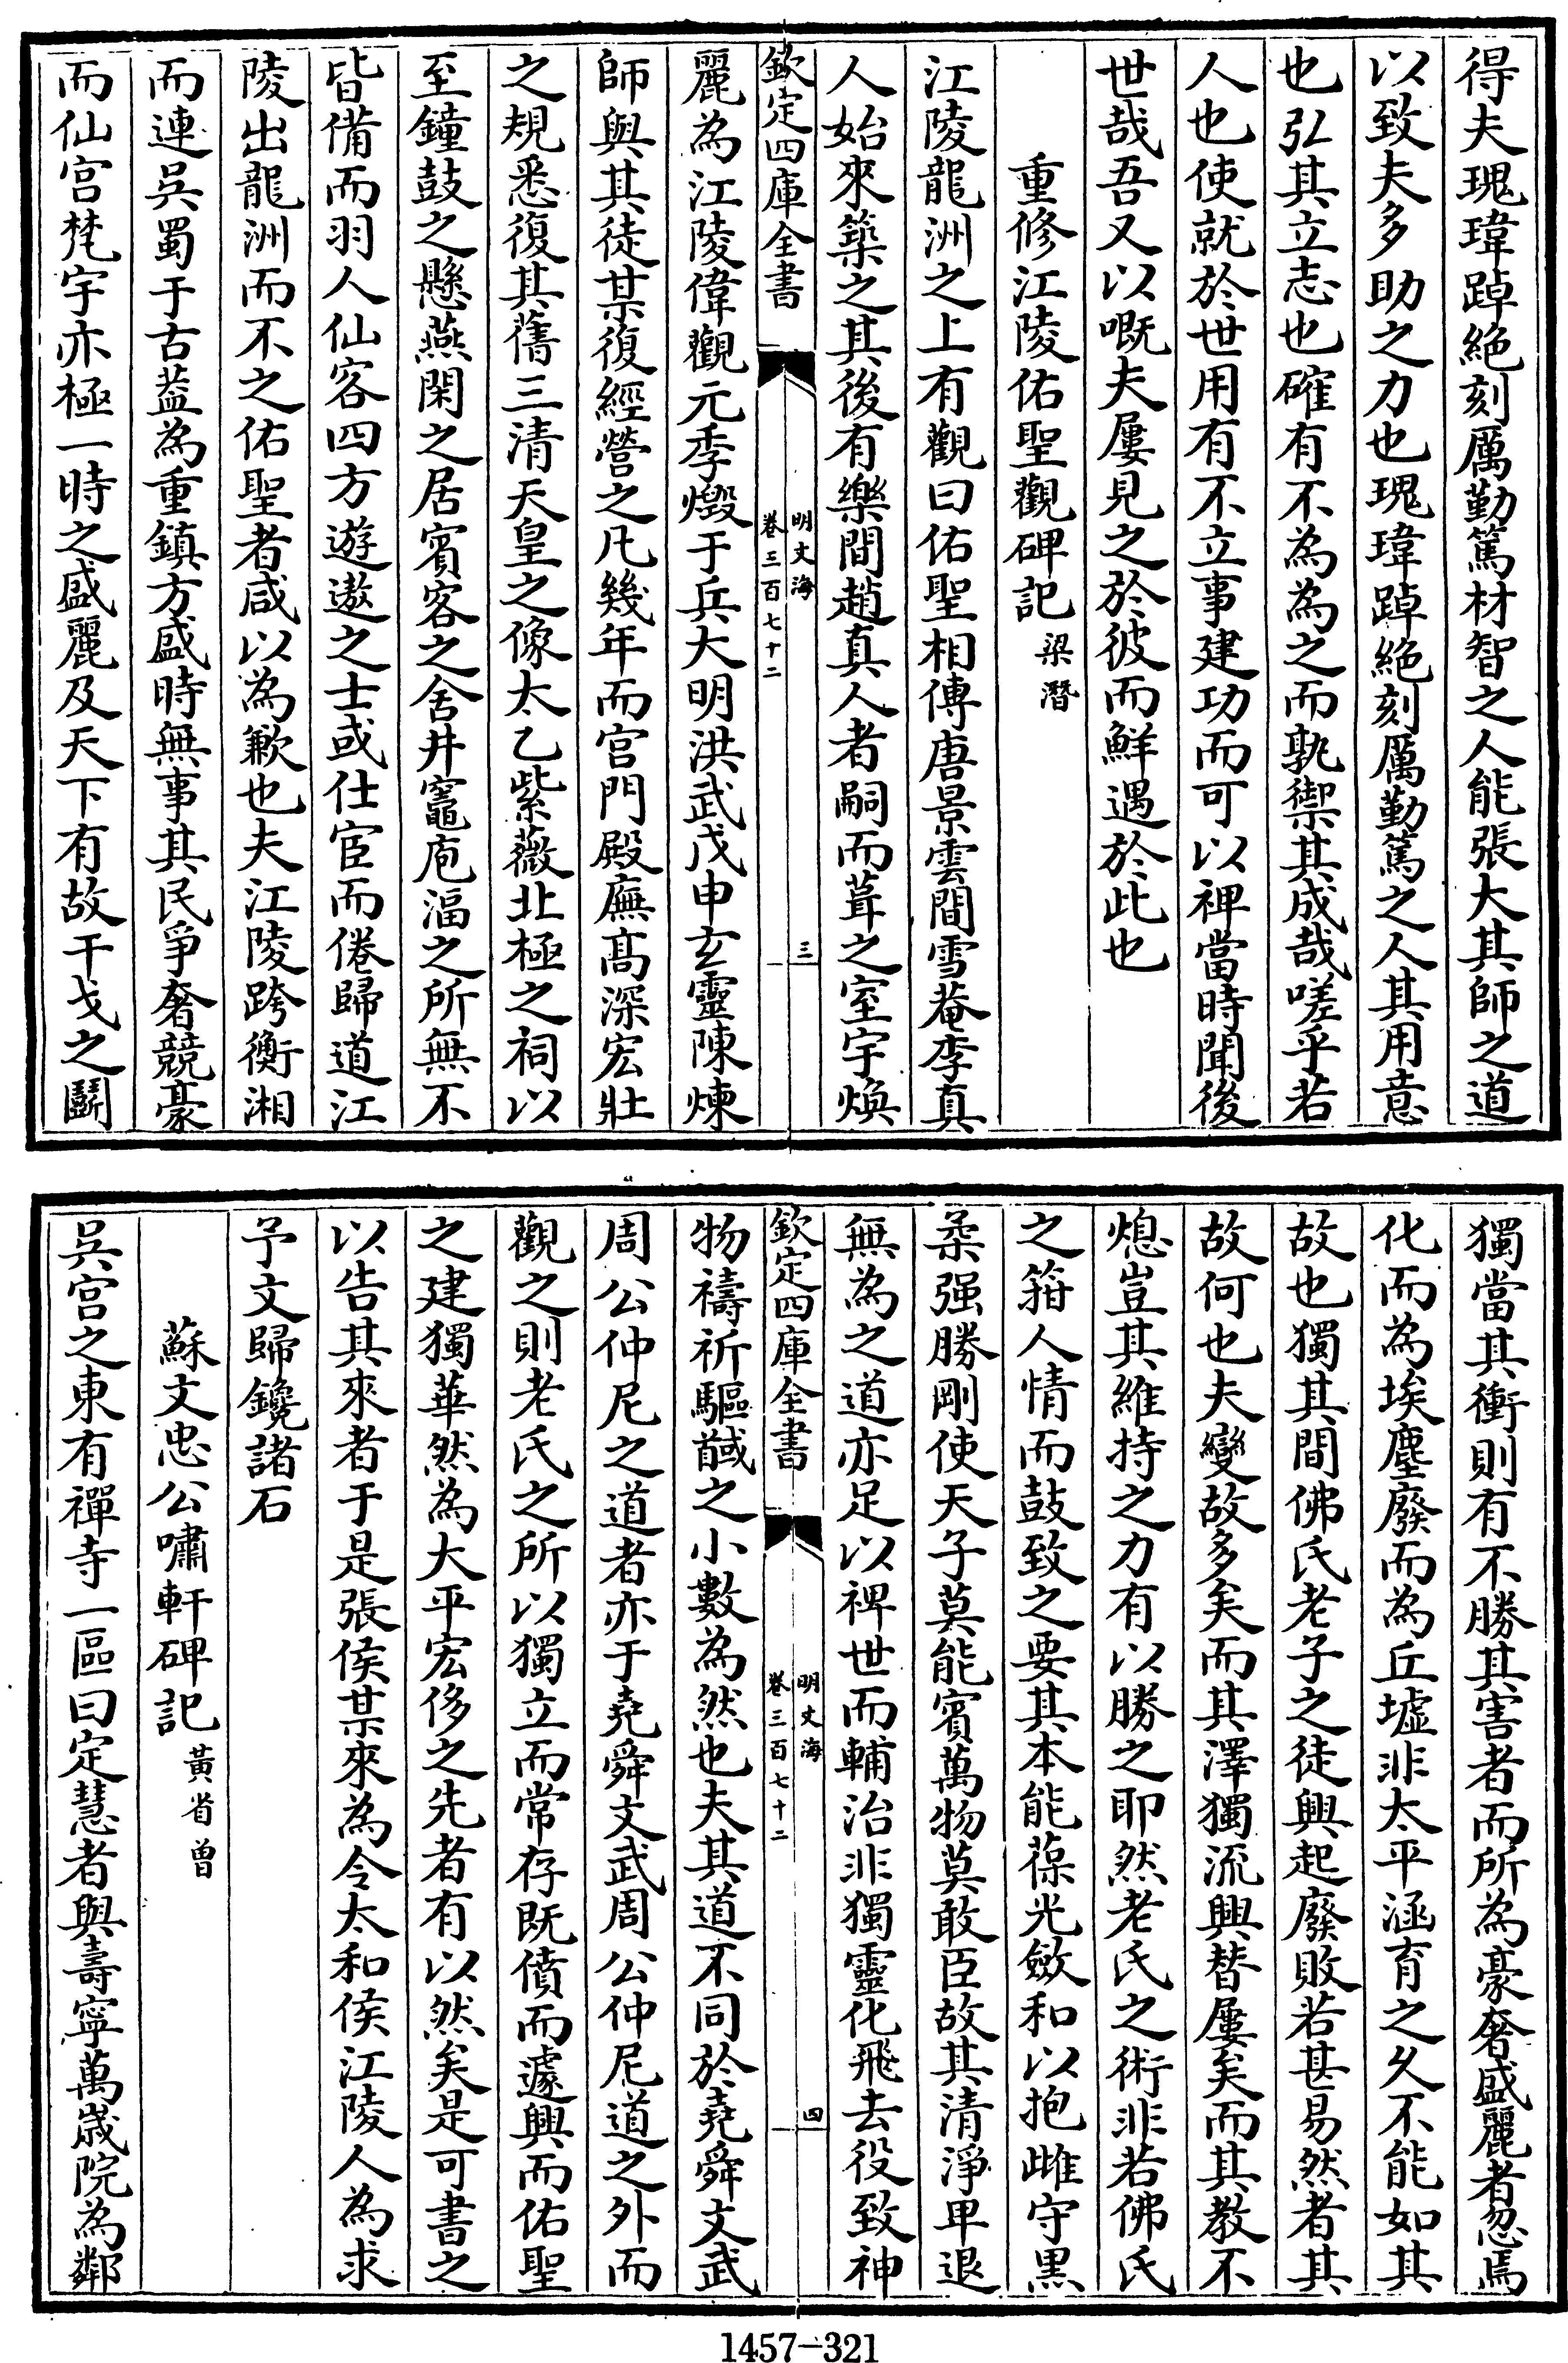 得夫瑰瑋踔絕刻厲勤篤材智之人能張大其師之道
以致夫多助之力也瑰瑋踔絕刻厲勤篤之人其用意
也弘其立志也確有不為為之而孰禦其成哉嗟乎若
人也使就於世用有不立事建功而可以裨當時聞後
世哉吾又以嘅夫屢見之於彼而鮮遇於此也
重修江陵佑聖觀碑記 梁潛
江陵龍洲之上有觀曰佑聖相傳唐景雲間雪菴李真
人始來築之其後有樂間趙真人者嗣而葺之室宇煥
欽定四庫全書
明文海
卷三百七十二
三
麗為江陵偉觀元季燬于兵大明洪武戊申玄靈陳煉
師與其徒某復經營之凡幾年而宫門殿廡髙深宏壯
之規悉復其舊三清天皇之像太乙紫薇北極之祠以
至鐘鼓之懸燕閑之居賓客之舍井竈庖湢之所無不
皆備而羽人仙客四方遊遨之士或仕宦而倦歸道江
陵出龍洲而不之佑聖者咸以為歉也夫江陵跨衡湘
而連吳蜀于古葢為重鎮方盛時無事其民爭奢競豪
而仙宫梵宇亦極一時之盛麗及天下有故干戈之鬬
獨當其衝則有不勝其害者而所為豪奢盛麗者忽焉
化而為埃塵廢而為丘墟非太平涵育之久不能如其
故也獨其間佛氏老子之徒興起廢敗若甚易然者其
故何也夫變故多矣而其澤獨流興替屢矣而其教不
熄豈其維持之力有以勝之耶然老氏之術非若佛氏
之箝人情而鼓致之要其本能葆光斂和以抱雌守黑
柔强勝剛使天子莫能賓萬物莫敢臣故其清淨卑退
無為之道亦足以裨世而輔治非獨靈化飛去役致神
欽定四庫全書
明文海
卷三百七十二
四
物禱祈驅馘之小數為然也夫其道不同於堯舜文武
周公仲尼之道者亦于堯舜文武周公仲尼道之外而
觀之則老氏之所以獨立而常存既僨而遽興而佑聖
之建獨華然為大平宏侈之先者有以然矣是可書之
以告其來者于是張侯某來為令太和侯江陵人為求
予文歸鑱諸石
蘇文忠公嘯軒碑記 黃省曾
吳宫之東有禪寺一區曰定慧者與壽寧萬歲院為鄰
1457-321